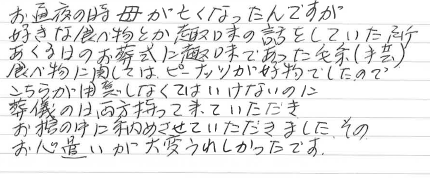 お通夜の時 母が亡くなったんですが
好きな食べ物とか趣味の話をしていた所
あくる日のお葬式に趣味であった毛糸(手芸)
食べ物に関しては、ピーナッツが好物でしたので
こちらが用意しなくてはいけないのに
葬儀の日は両方持って来ていただき
お棺の中に納めさせていただきました。その
お心遣いが大変うれしかったです。